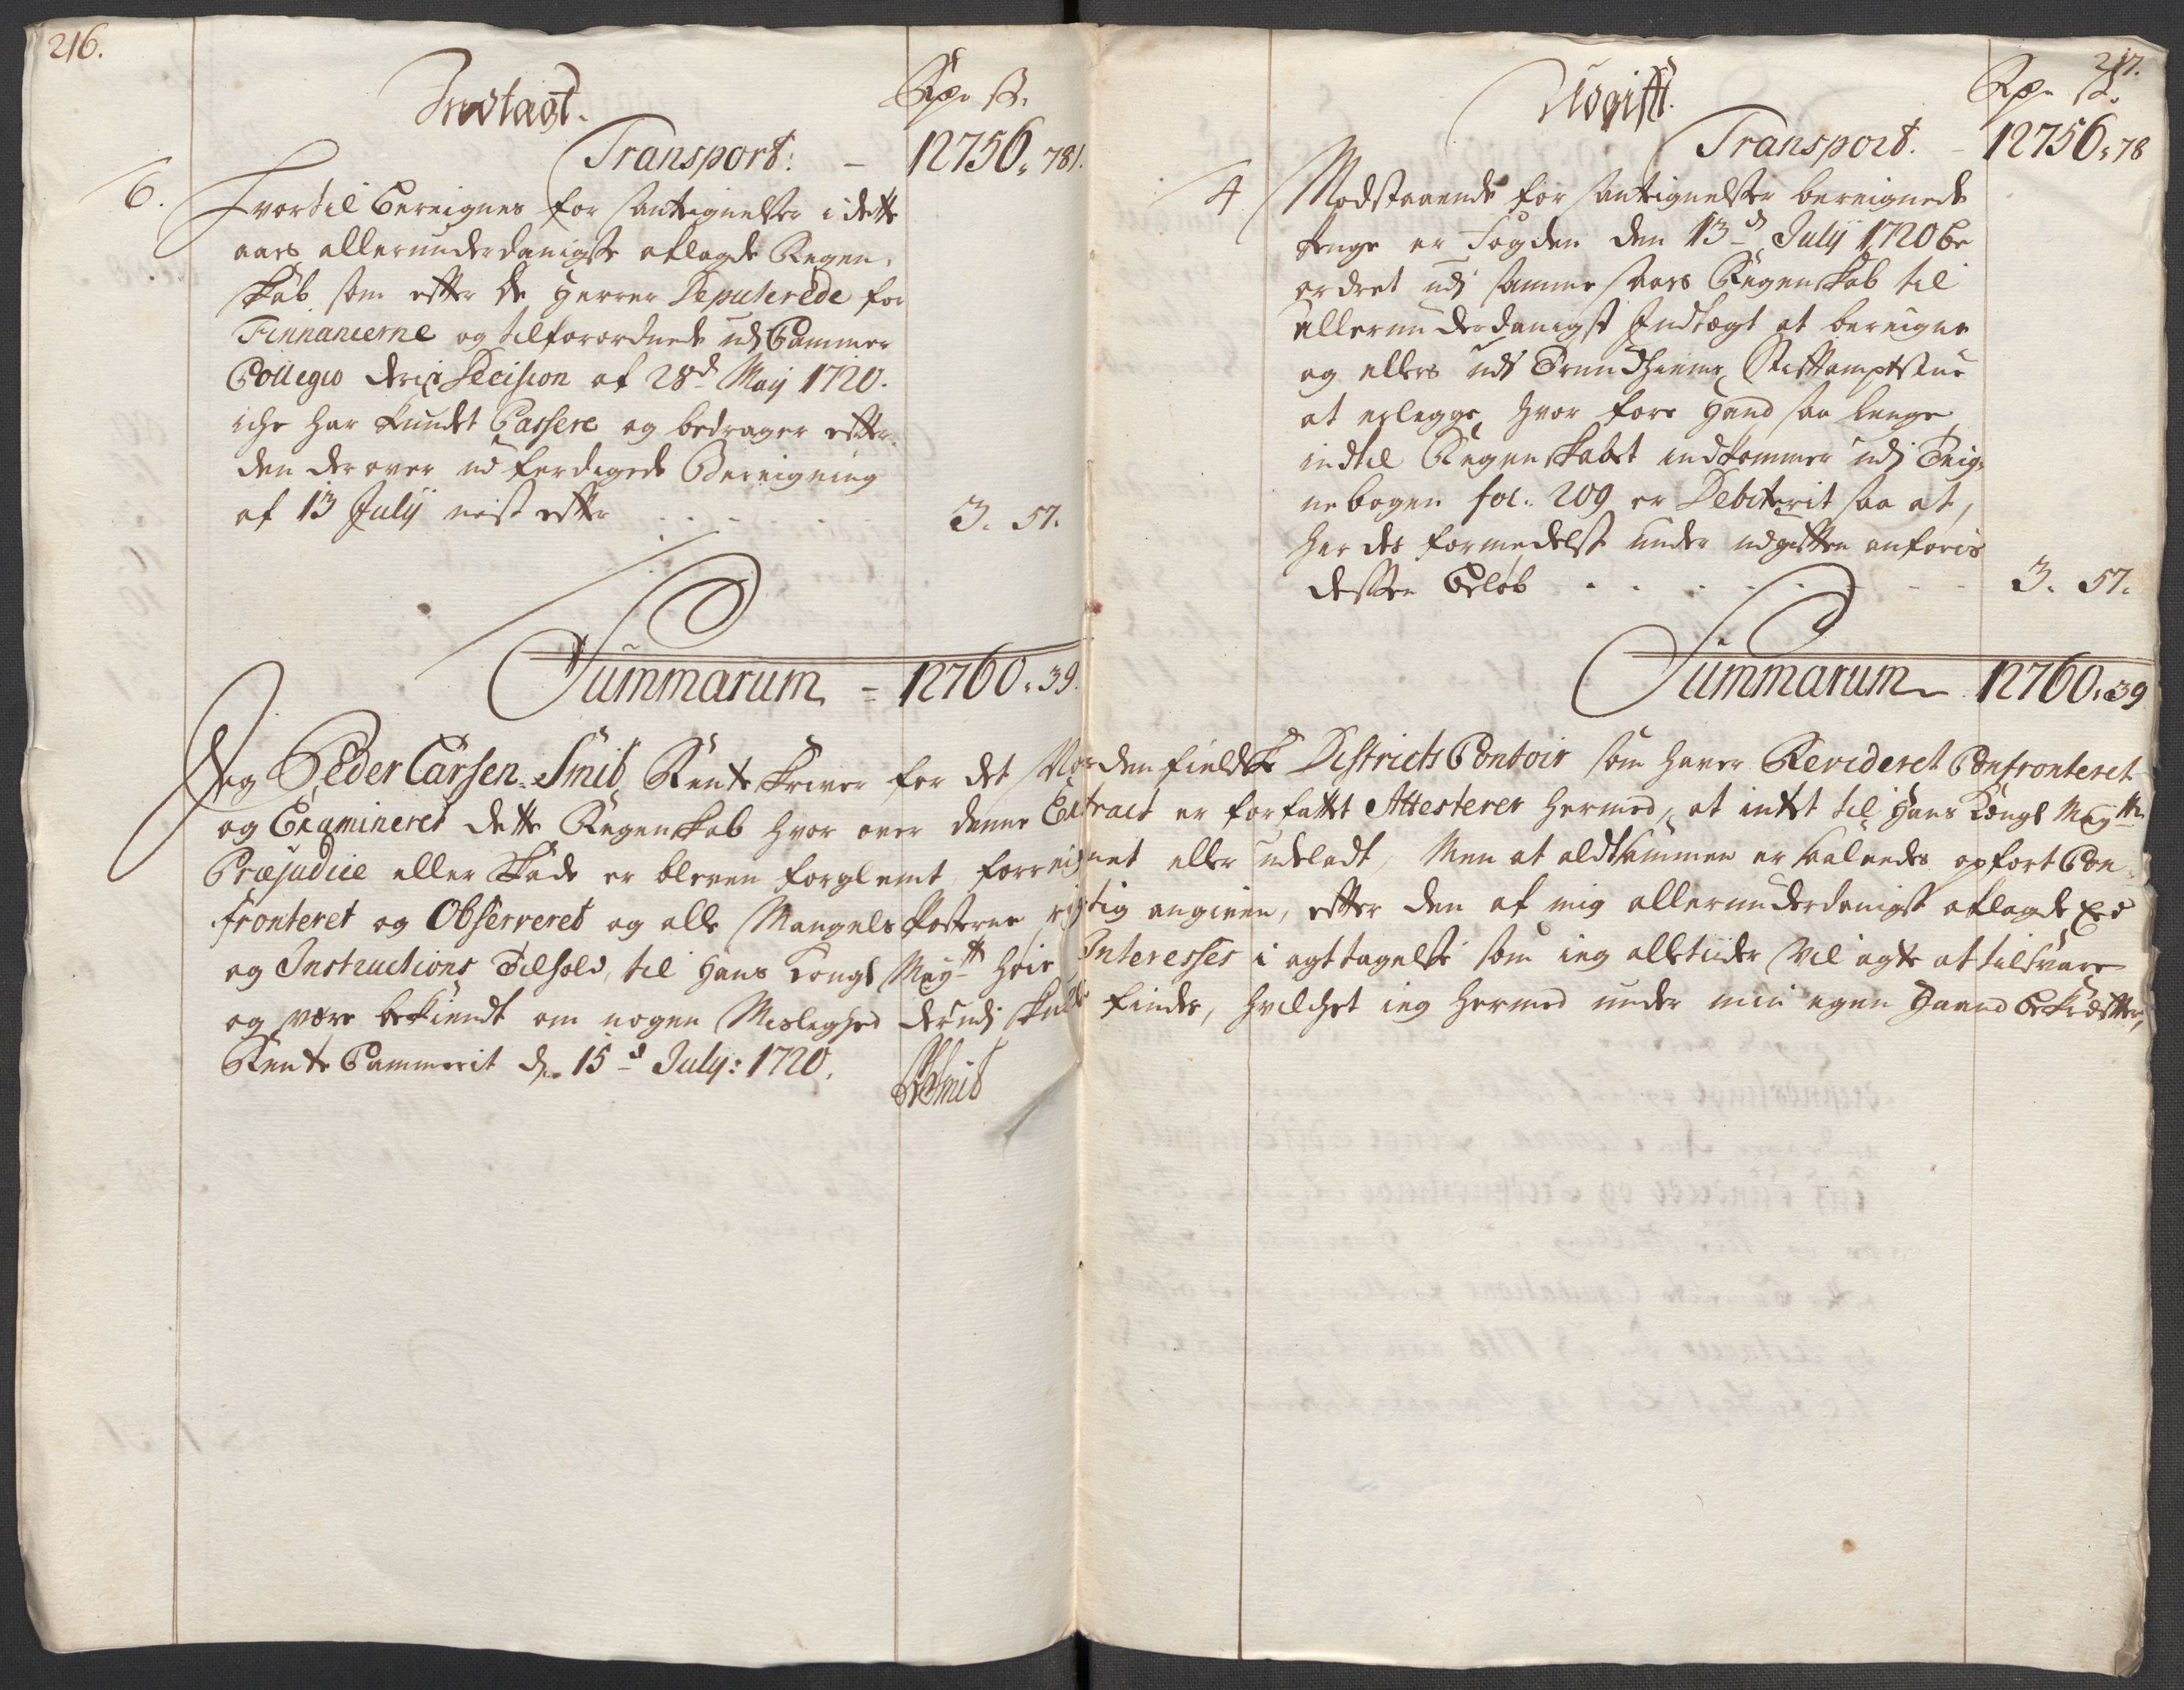 216.
Indtagt.
Rdr ß.
Transport: - 12756. 78 1.
6. Hvortil Bereignes for Antegnelser i dette
aars allerunderdanigste aflagde Regen-
skab som efter de Herrer Deputerede for
Finnancerne og tilforordnede udj Cammer
Collegio deris Decision af 28d Maij 1720.
iche har kundet Passere og bedrager efter
den derover udferdigede Bereigning
af 13 Julij nest efter 3. 57.
Summarum - 12760. 39.
217.
Udgifft.
Rdr ß.
Transport. - 12756. 78
4 Modstaaende for Antegnelser bereignede
penge er Fogden den 13d Julij 1720 be
ordret udj samme Aars Regenskab til
allerunderdanigst Indtægt at bereigne
og ellers udj Trundhiems Stiftamptstue
at erlegge, hvor fore hand saa lenge
indtil Regenskabet indkommer udj Teig-
nebogen fol: 209 er Debiterit saa at,
her des formedelst under udgiften anføris
dessen Beløb 3. 57.
Summarum 12760. 39
Jeg Peder Larsen Smid Rente skriver for det Nordenfieldske Districts Contoir som haver Revideret Confronteret
og Examineret dette Regenskab hvor over denne Extract er forfattet Attesterer hermed, at intet til Hans Kongl Maytts
Præjudice eller Skade er bleven forglemt forreignet eller udeladt, Men at altsammen er saaledes opført Con-
fronteret og Observeret og alle Mangels Posterne rigtig angiven, efter den af mig allerunderdanigst aflagde Eed
og Instructions Tilhold, til Hans Kongl Maytt høie Interesses i agttagelse som ieg alletiider vil agte at tilsvare
og være bekiendt om nogen Misleghed derudj skulde findes, hvilchet ieg hermed under min egen Haand bekræfter,
Rente Cammerit d. 15d Julij: 1720.
PLSmid